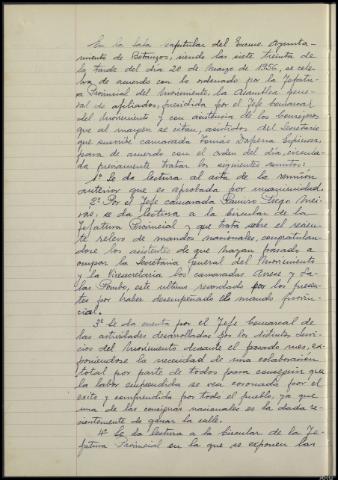 En la sala capitular del Excmo. Ayunta-
miento de Betanzos, siendo las siete treinta de
la tarde del día 20 de Marzo de 1956, se cele-
bra de acuerdo con lo ordenado por la Jefatu-
ra Provincial del Movimiento, la Asamblea gene-
ral de afiliados, presidida por el Jefe comarcal
del Movimiento y con asistencia de los consejeros
que al margen se citan, asistidos del Secretario
que suscribe camarada Tomás Dapena Espinosa,
para de acuerdo con el orden del día, circula-
da previamente tratar los siguientes asuntos:
1º Se da lectura al acta de la reunión
anterior que es aprobada por unanimidad.
2º Por el Jefe camarada Ramiro Diego Nei-
ras, se da lectura a la circular de la
Jefatura Provincial y que trata sobre el recien-
te relevo de mandos nacionales, congratulan-
dose los asistentes de que hayan pasado a
ocupar la Secretaria General del Movimiento
y la Vicesecretaria los camaradas Arrese y Sa-
las Pombo, este ultimo recordado por los presen-
tes por haber desempeñado el mando provin-
cial.
3º Se da cuenta por el Jefe comarcal de
las actividades desarrolladas por los distintos servi-
cios del Movimiento durante el pasado mes, ex-
poniendose la necesidad de una colaboración
total por parte de todos para conseguir que
la labor emprendida se vea coronada por el
exito y comprendida por todo el pueblo, ya que
una de las consignas nacionales es la dada re-
cientemente de ganar la calle.
4º Se da lectura a la Circular de la Je-
fatura Provincial en la que se exponen las